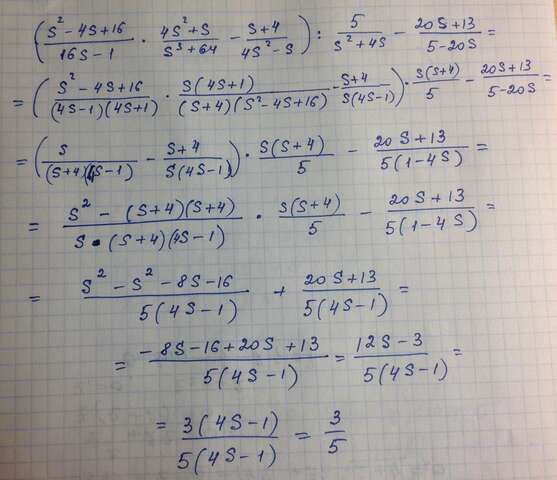 ( (S² - 4S + 16)/(16S - 1) · (4S² + S)/(S³ + 64) - (S + 4)/(4S² - S) ) : 5/(S² + 4S) - (20S + 13)/(5 - 20S) =
= ( (S² - 4S + 16)/((4S - 1)(4S + 1)) · S(4S + 1)/((S + 4)(S² - 4S + 16)) - (S + 4)/(S(4S - 1)) ) · S(S + 4)/5 - (20S + 13)/(5 - 20S) =
= ( S/((S + 4)(4S - 1)) - (S + 4)/(S(4S - 1)) ) · S(S + 4)/5 - (20S + 13)/(5(1 - 4S)) =
= (S² - (S + 4)(S + 4))/(S · (S + 4)(4S - 1)) · S(S + 4)/5 - (20S + 13)/(5(1 - 4S)) =
= (S² - S² - 8S - 16)/(5(4S - 1)) + (20S + 13)/(5(4S - 1)) =
= (-8S - 16 + 20S + 13)/(5(4S - 1)) = (12S - 3)/(5(4S - 1)) =
= 3(4S - 1)/(5(4S - 1)) = 3/5